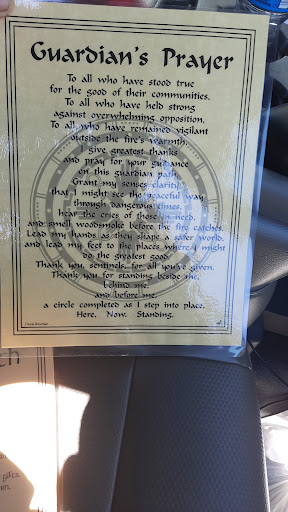 Guardian's Prayer
To all who have stood true
for the good of their communities,
To all who have held strong
against overwhelming opposition,
To all who have remained vigilant
outside the fire's warmth,
I give greatest thanks
and pray for your guidance
on this guardian path.
Grant my senses clarity,
that I might see the peaceful way
through dangerous times,
hear the cries of those in need,
and smell woodsmoke before the fire catches.
Lead my hands as they shape a safer world,
and lead my feet to the places where I might
do the greatest good.
Thank you, sentinels, for all you've given.
Thank you for standing beside me,
behind me,
and before me,
a circle completed as I step into place.
Here. Now. Standing.
ch
gifts